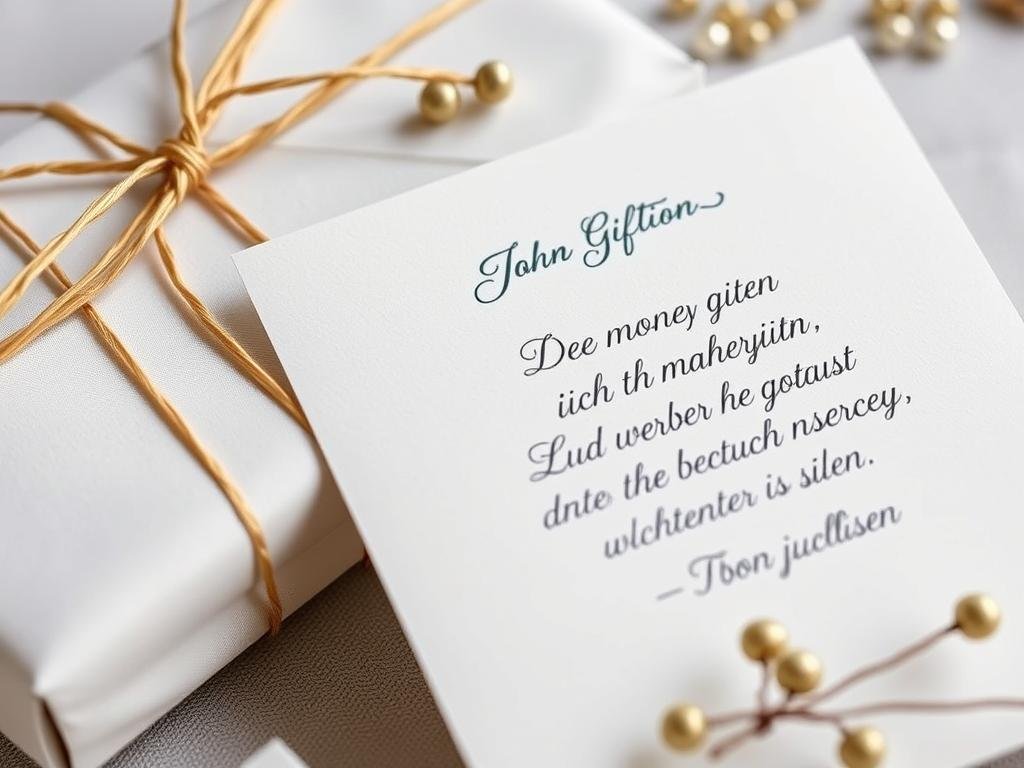 John Giftion
Dee money giten
iich th maheryiitn,
Lud werber he gotaust
dnte the bectuch nsercey,
wlchtenter is silen.
– Tbon jucllisen